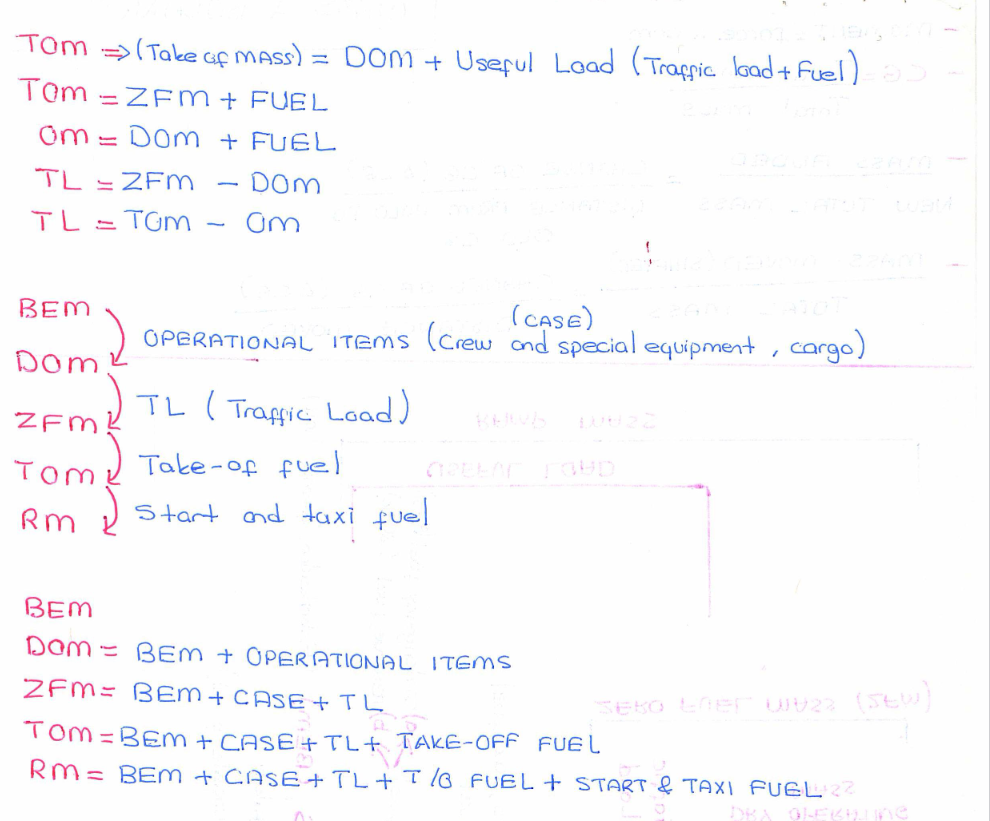 TOM ⇒ (Take of MASS) = DOM + Useful Load (Traffic load + Fuel)
TOM = ZFM + FUEL
OM = DOM + FUEL
TL = ZFM - DOM
TL = TOM - OM
BEM
(CASE)
OPERATIONAL ITEMS (Crew and special equipment, cargo)
DOM
TL (Traffic Load)
ZFM
Take-of fuel
TOM
Start and taxi fuel
RM
BEM
DOM = BEM + OPERATIONAL ITEMS
ZFM = BEM + CASE + TL
TOM = BEM + CASE + TL + TAKE-OFF FUEL
RM = BEM + CASE + TL + T/O FUEL + START & TAXI FUEL